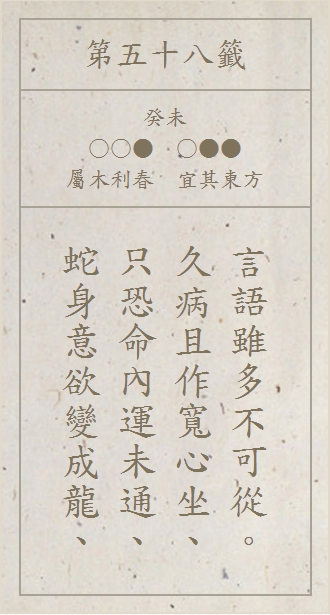 第五十八籤
癸未
○○● ○●●
屬木利春 宜其東方
蛇身意欲變成龍、
只恐命內運未通、
久病且作寬心坐、
言語雖多不可從。